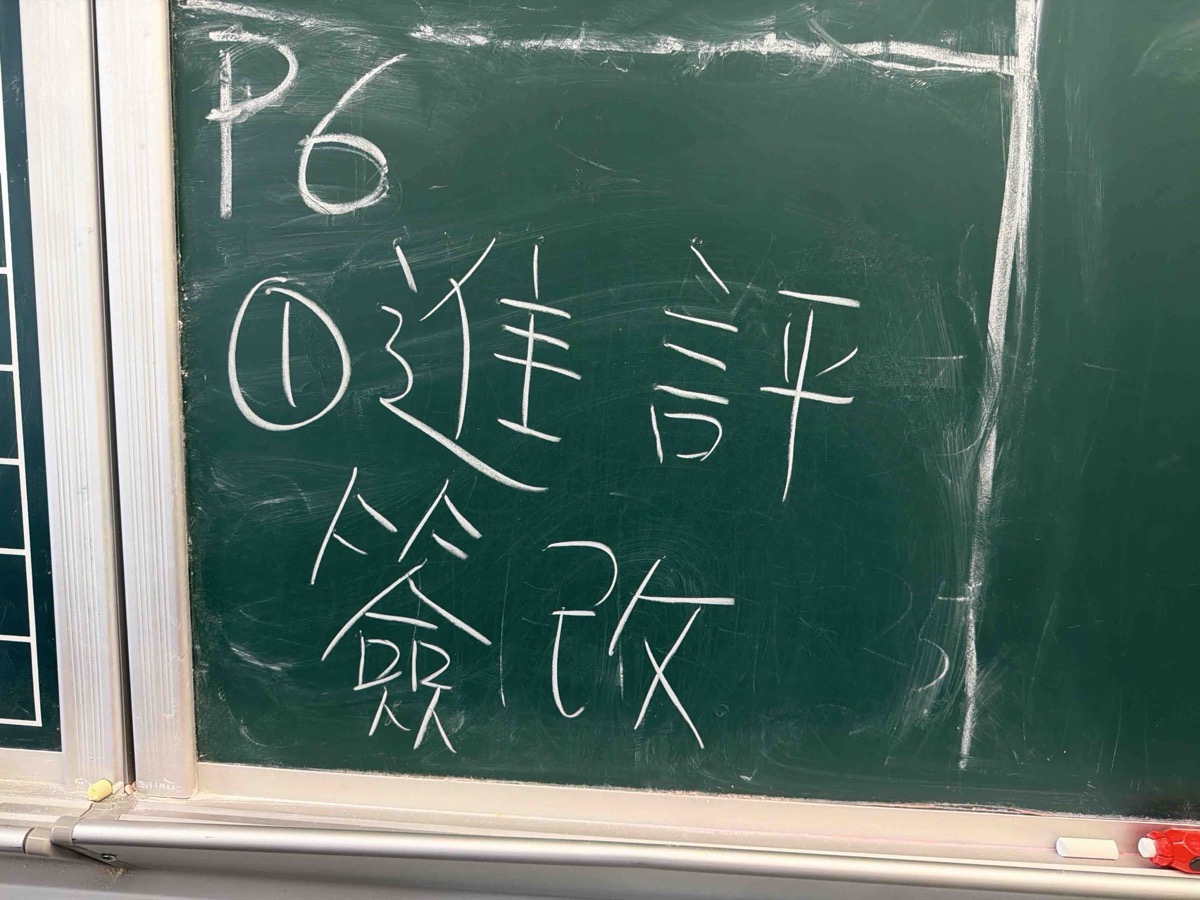 P6
①進評
簽改